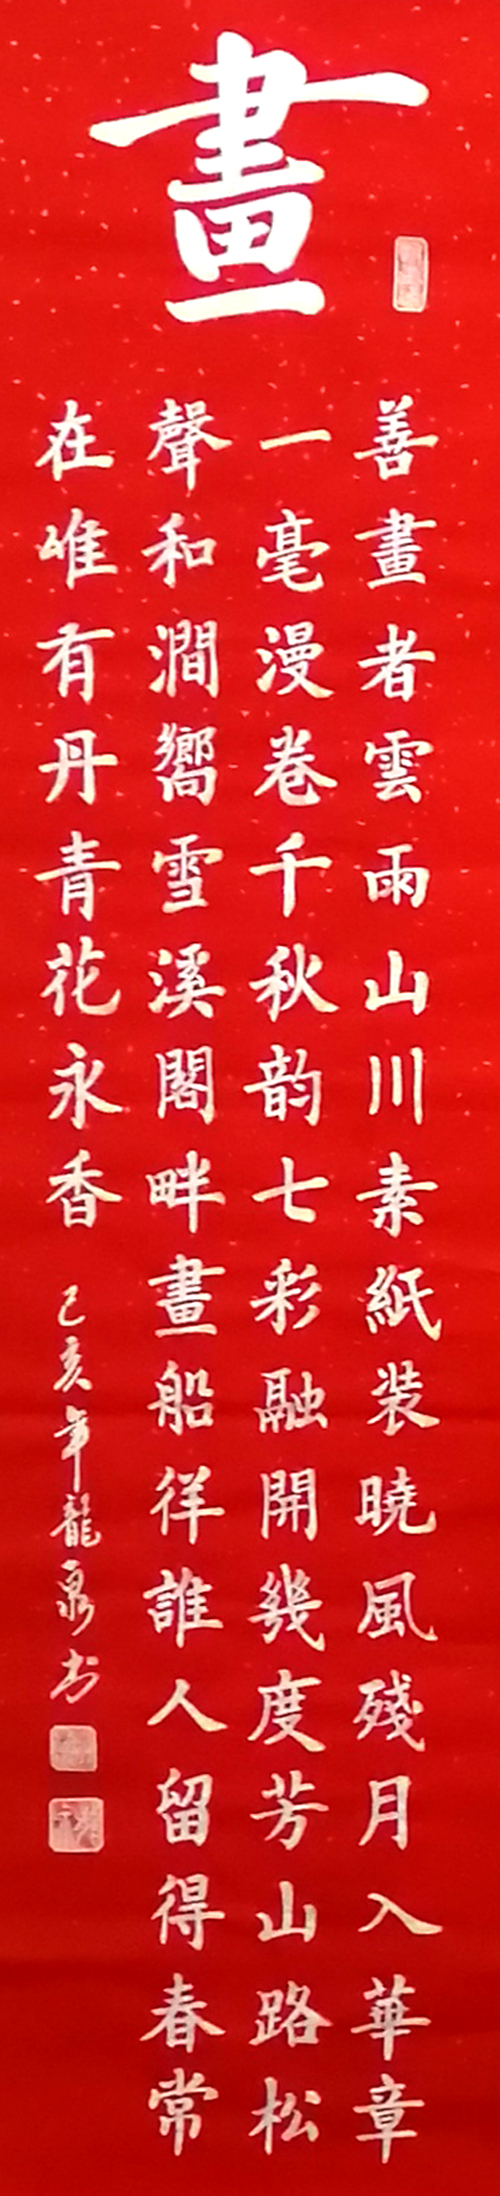 畫
善畫者雲雨山川素紙装曉風殘月入華章
一毫漫卷千秋韵七彩融開幾度芳山路松
聲和澗嚮雪溪閣畔畫船徉誰人留得春常
在唯有丹青花永香
己亥年龍泉书